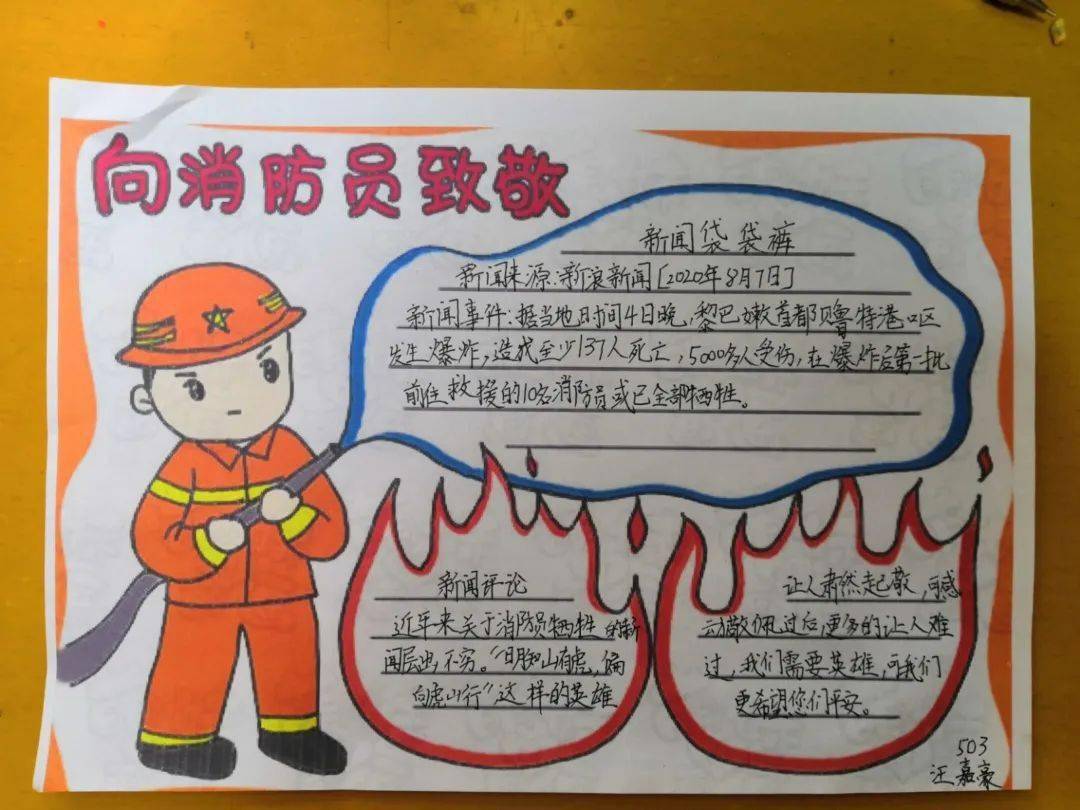 向消防员致敬
新闻袋袋裤
新闻来源:新浪新闻[2020年8月7日]
新闻事件:据当地时间4日晚,黎巴嫩首都贝鲁特港口区
发生爆炸,造成至少137人死亡,5000多人受伤,在爆炸后第一批
前往救援的10名消防员或已全部牺牲。
新闻评论
近年来关于消防员牺牲的新
闻层出不穷。“明知山有虎,偏
向虎山行”这样的英雄
让人肃然起敬,可感
动敬佩过后更多的让人难
过,我们需要英雄,可我们
更希望您们平安。
503
汪嘉豪